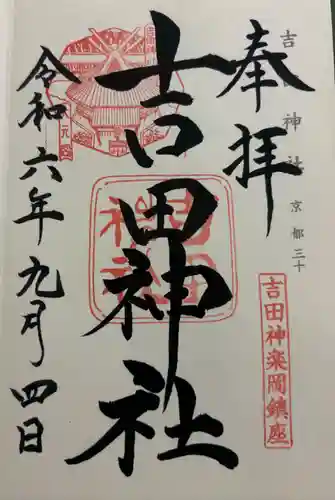 奉拝
吉田神社
京都三十
吉田神楽岡鎮座
吉田神社
令和六年九月四日